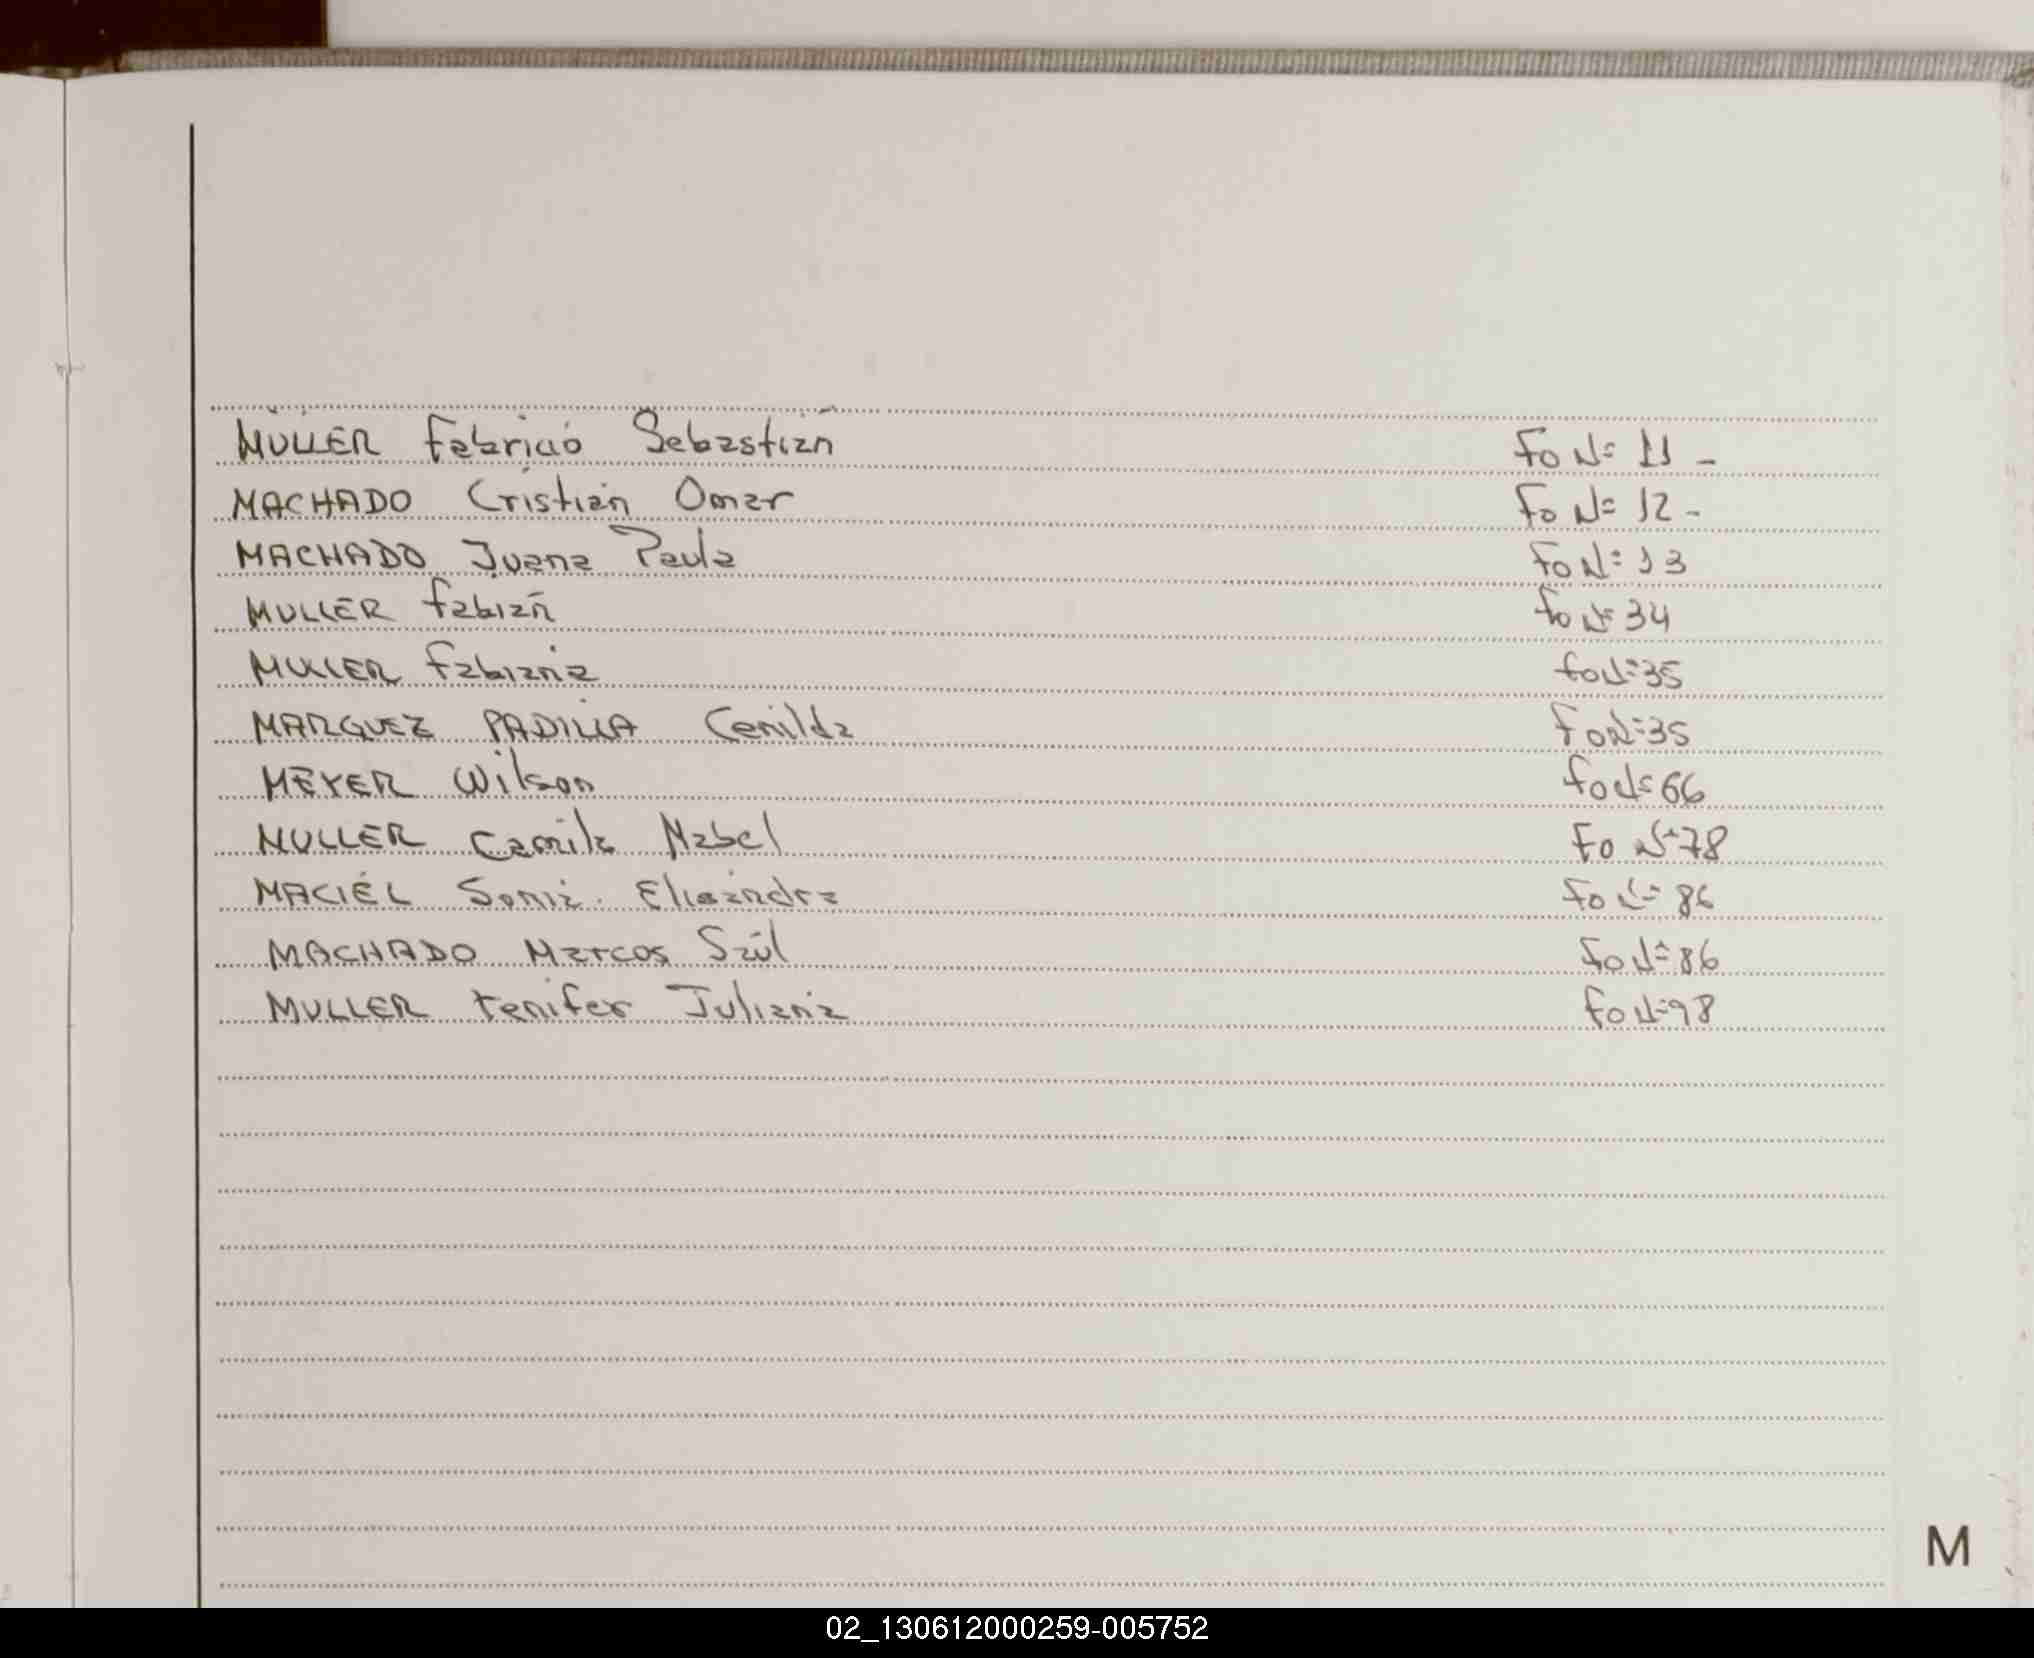 MULLER Fabricio Sebastián Fo Nº 11 -
MACHADO Cristian Omar Fo Nº 12 -
MACHADO Juana Paula Fo Nº 13
MULLER Fabián Fo Nº 34
MULLER Fabiana Fo Nº 35
MARQUEZ PADILLA Cenilda Fo Nº 35
MEYER Wilson Fo Nº 66
MULLER Camila Mabel Fo Nº 78
MACIEL Sonia Fo Nº 86
MACHADO Marcos Saúl Fo Nº 86
MULLER Yenifer Juliana Fo Nº 98
M
02_130612000259-005752